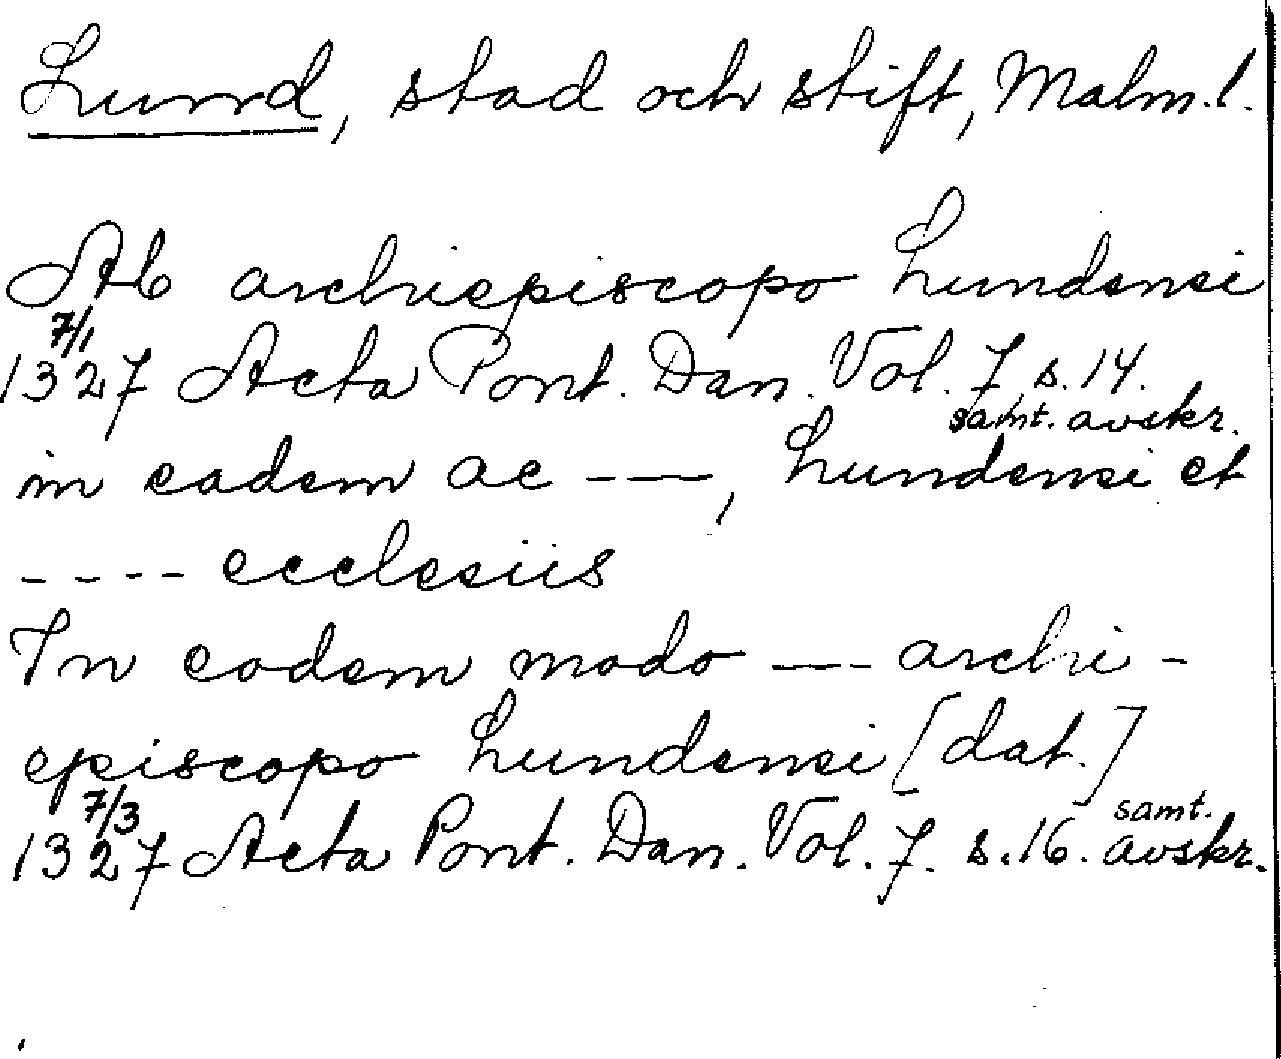 Lund, stad och stift, Malm.l.
Ab archiepiscopo Lundensi
7/1
1327 Acta Pont. Dan. Vol. 7 s. 14.
samt. avskr.
in eadem ac - — , Lundensi et
- - - - ecclesiis
In eodem modo - — - archi-
episcopo Lundensi [dat.]
7/3
1327 Acta Pont. Dan. Vol. 7. s. 16. samt. avskr.